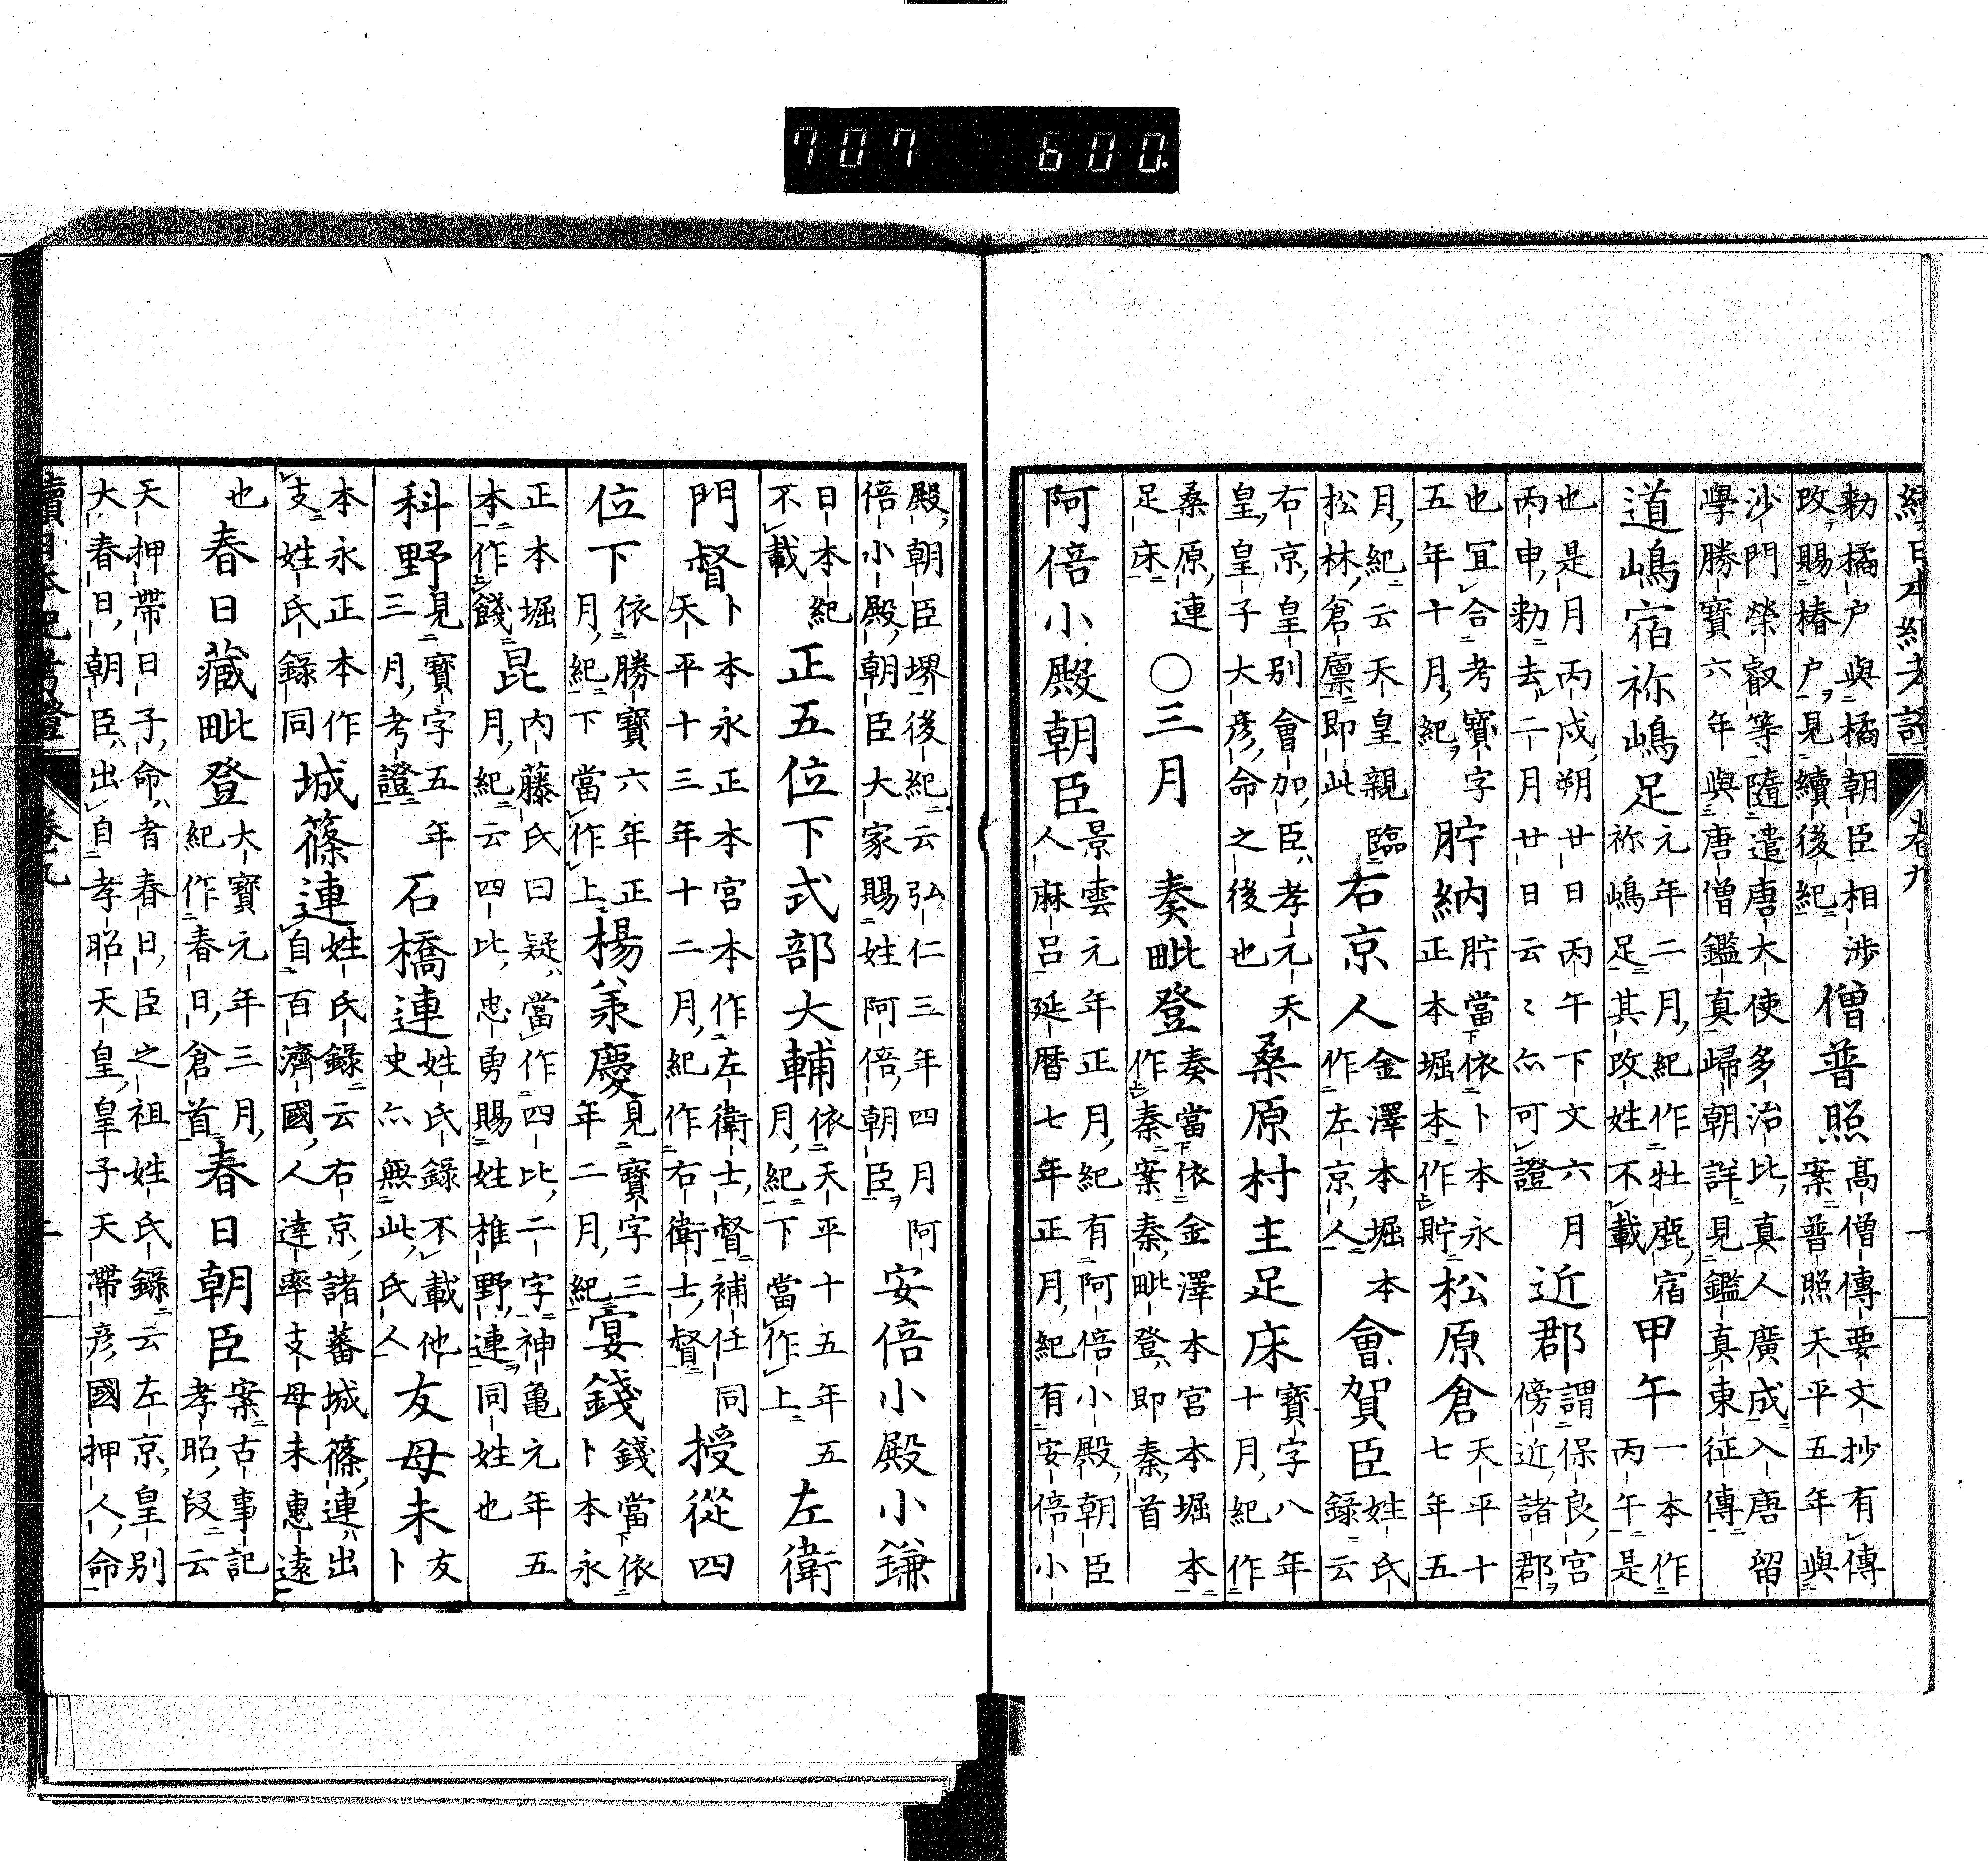 707 600.
續日本紀考證 卷九 一
勅橘戸與橘朝臣相渉
改賜椿戸見續後紀
僧普照
高僧傳要文抄有傳
案普照天平五年與
沙門榮叡等隨遣唐大使多治比真人廣成入唐留
學勝寶六年與唐僧鑑真歸朝詳見鑑真東征傳
道嶋宿祢嶋足
元年二月紀作牡鹿宿
祢嶋足其改姓不載
甲午
一本作
丙午是
也是月丙戌朔廿日丙午下文六月
丙申勅去二月廿日云〻亦可證
近郡
謂保良宮
傍近諸郡
也冝合考寶字
五年十月紀
貯納
貯當依卜本永
正本堀本作貯
松原倉
天平十
七年五
月紀云天皇親臨
松林倉廩即此
右京人
金澤本堀本
作左京人
會賀臣
姓氏
錄云
右京皇別會加臣孝元天
皇皇子大彦命之後也
桑原村主足床
寶字八年
十月紀作
桑原連
足床
〇三月 奏毗登
奏當依金澤本宮本堀本
作秦案秦毗登即秦首
阿倍小殿朝臣
景雲元年正月紀有阿倍小殿朝臣
人麻呂延暦七年正月紀有安倍小
殿朝臣堺後紀云弘仁三年四月阿
倍小殿朝臣大家賜姓阿倍朝臣
安倍小殿小鎌
日本紀
不載
正五位下式部大輔
依天平十五年五
月紀下當作上
左衛
門督
卜本永正本宮本作左衛士督補任同
天平十三年十二月紀作右衛士督
授從四
位下
依勝寶六年正
月紀下當作上
楊羕慶
見寶字三
年二月紀
宴錢
錢當依
卜本永
正本堀
本作餞
昆
内藤氏曰疑當作四比二字神亀元年五
月紀云四比忠勇賜姓椎野連同姓也
科野
見寶字五年
三月考證
石橋連
姓氏錄不載他
史亦無此氏人
友母未
友
卜
本永正本作
支姓氏錄同
城篠連
姓氏錄云右京諸蕃城篠連出
自百濟國人達率支母未惠遠
也
春日藏毗登
大寶元年三月
紀作春日倉首
春日朝臣
案古事記
孝昭段云
天押帶日子命者春日臣之祖姓氏錄云左京皇別
大春日朝臣出自孝昭天皇皇子天帶彦國押人命
續日本紀考證 卷九 二